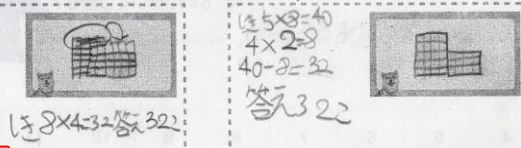 しき8×4=32答え32こ
しき5×8=40
4×2=8
40-8=32
答え32こ